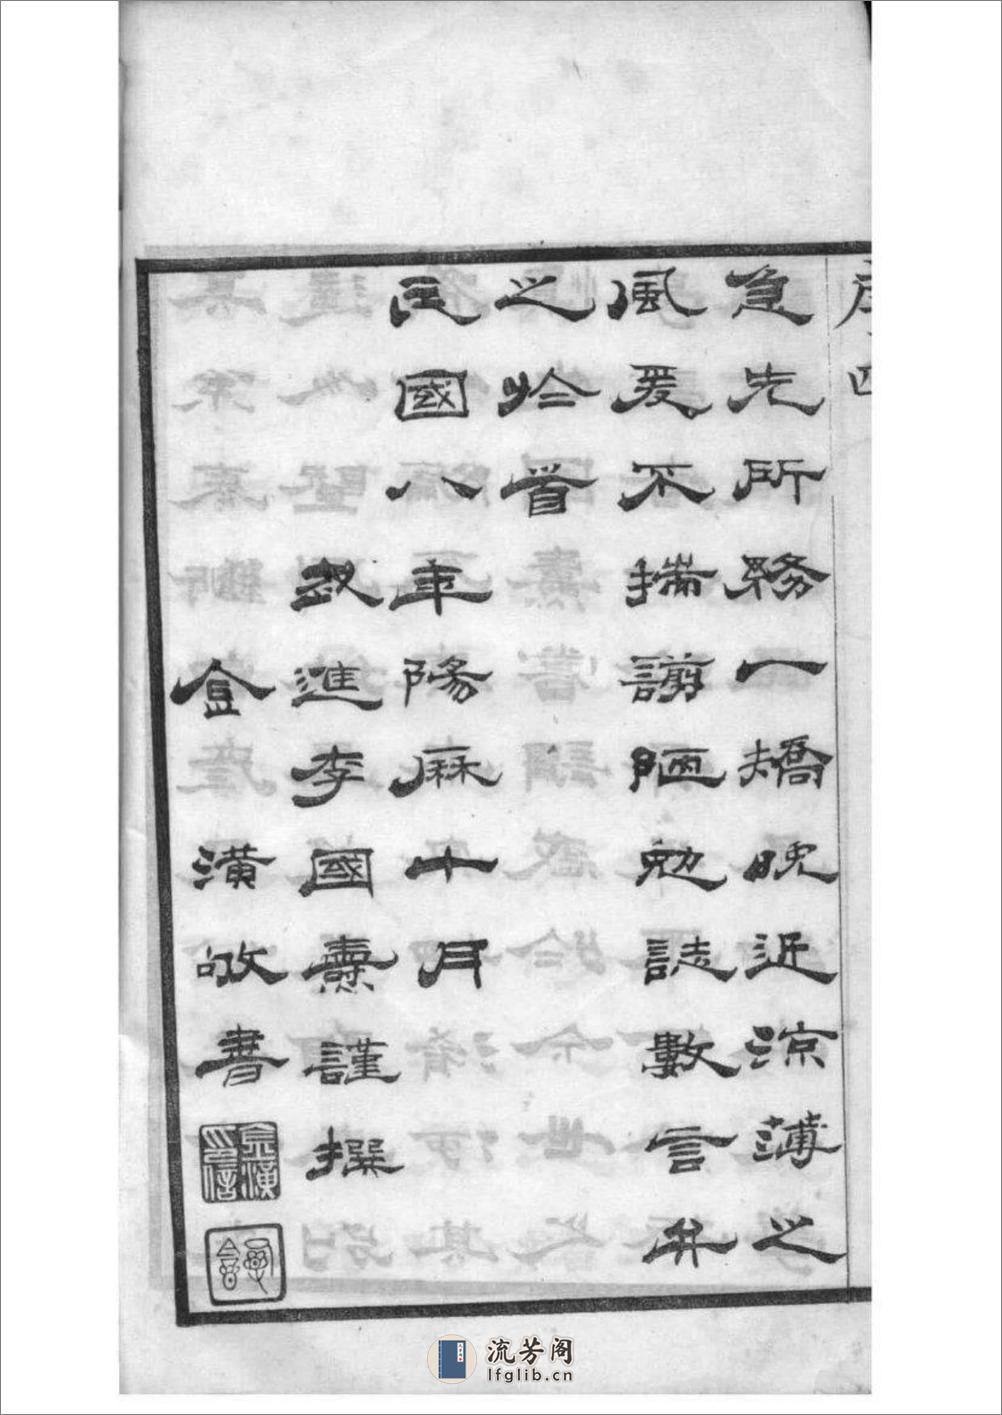 序四
急先所務一矯晚近涼薄之
風爰不揣謭陋勉誌數言弁
之於首
民國八年陽厤十月
叔進李國燾謹撰
潢敬書
流芳阁
lfglib.cn